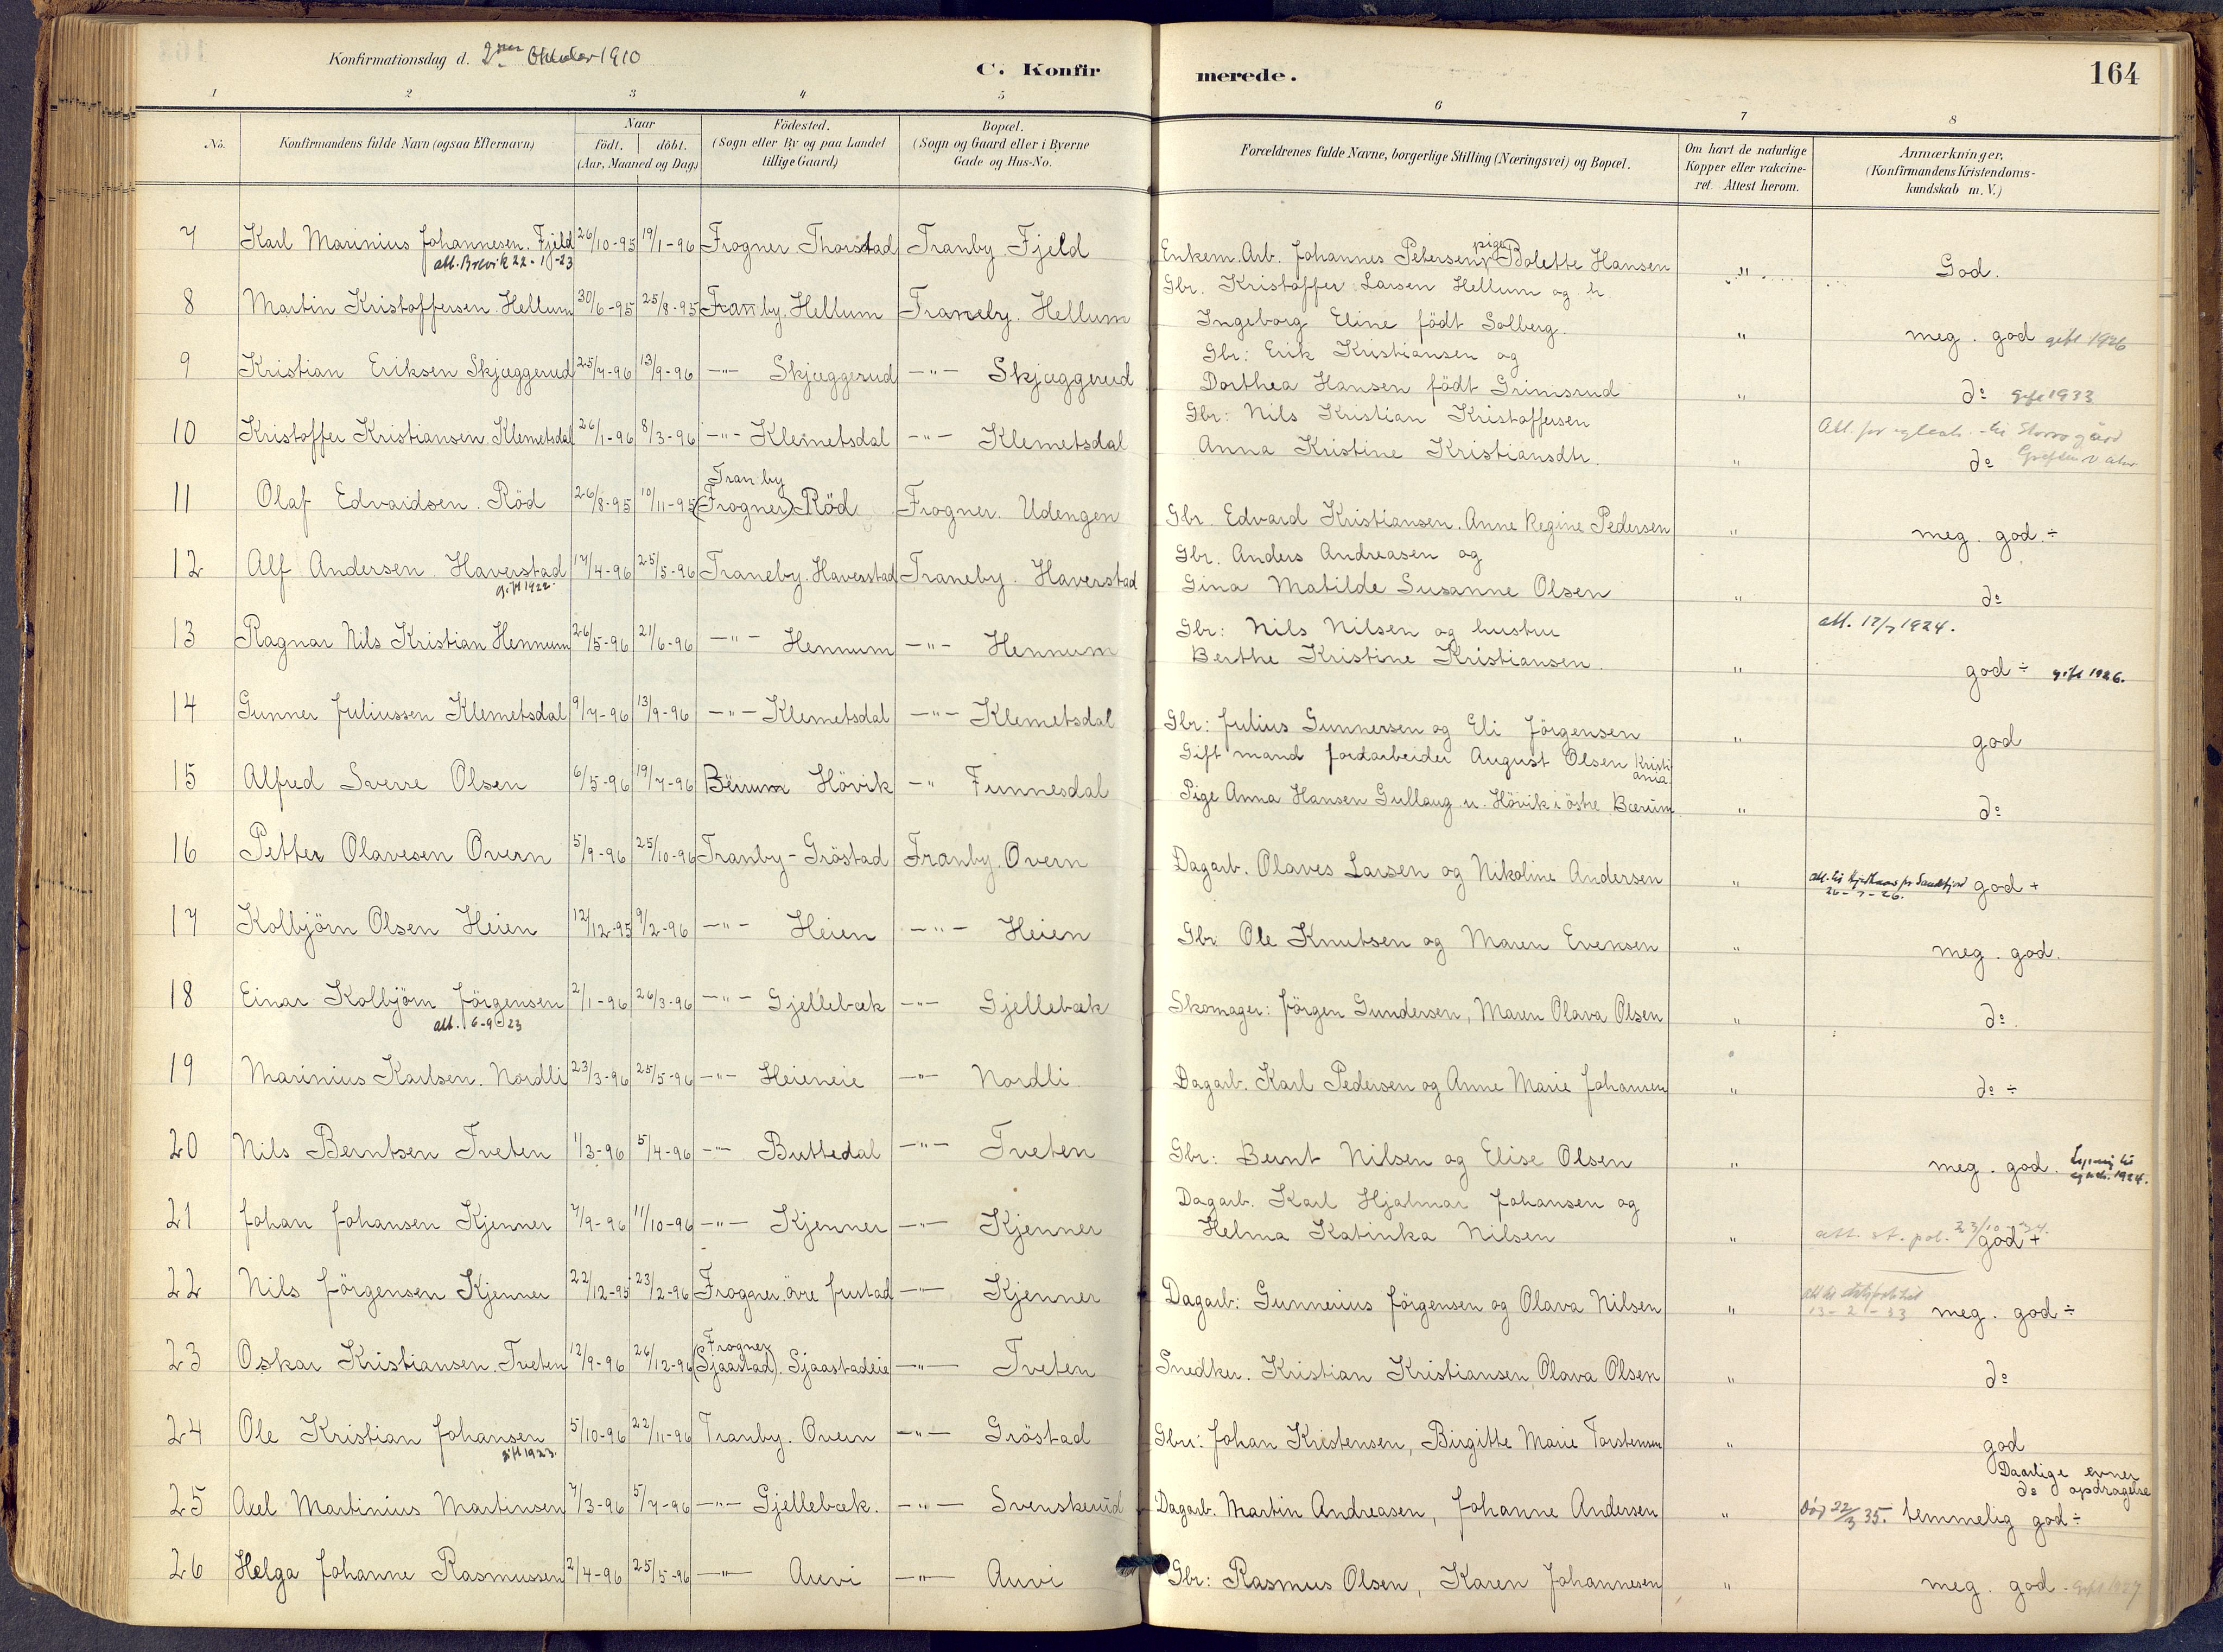 Konfirmationsdag d. 2den Oktober 1910
C. Konfirmerede.
164
1 2 3 4 5 6 7 8
No.
Konfirmandens fulde Navn (ogsaa Efternavn)
Naar
födt. döbt.
(Aar, Maaned og Dag)
Födested.
(Sogn eller By og paa Landet
tillige Gaard)
Bopæl.
(Sogn og Gaard eller i Byerne
Gade og Hus-No.
Forældrenes fulde Navne, borgerlige Stilling (Næringsvei) og Bopæl.
Om havt de naturlige
Kopper eller vakcine-
ret. Attest herom.
Anmærkninger.
(Konfirmandens Kristendoms-
kundskab m. V.)
7 Karl Marinius Johannesen. Fjeld 26/10-95 19/1-96 Frogner. Thorstad Tranby. Fjeld Enkem. Arb. Johannes Petersen, pige Bolette Hansen " God.
att. Brevik 22-1-23
8 Martin Kristoffersen. Hellum 30/6-95 25/8-95 Tranby. Hellum Traneby. Hellum Gbr. Kristoffer Larsen Hellum og h.
Ingeborg Eline födt Solberg. " meg. god gift 1926
9 Kristian Eriksen Skjæggerud 25/7-96 13/9-96 -"- Skjæggerud -"- Skjæggerud Gbr: Erik Kristiansen og
Dorthea Hansen födt Grimsrud " do gift 1933
10 Kristoffer Kristiansen. Klemetsdal 26/1-96 8/3-96 -"- Klemetsdal -"- Klemetsdal Gbr: Nils Kristian Kristoffersen
Anna Kristine Kristiansdtr. " do
11 Olaf Edvardsen. Röd 26/8-95 10/11-95 Tranby
(Frogner) Röd Frogner. Udengen Gbr. Edvard Kristiansen. Anne Regine Pedersen " meg. god. ÷
12 Alf Andersen Haverstad 17/4-96 25/5-96 Traneby. Haverstad Traneby. Haverstad Gbr. Anders Andreasen og
gift 1922.
Gina Matilde Susanne Olsen " do
13 Ragnar Nils Kristian Hennum 26/5-96 21/6-96 -"- Hennum -"- Hennum Gbr: Nils Nilsen og hustru att. 12/7 1924.
Berthe Kristine Kristiansen. " god ÷ gift 1926.
14 Gunner Juliussen Klemetsdal 9/7-96 13/9-96 -"- Klemetsdal -"- Klemetsdal Gbr: Julius Gunnersen og Eli Jörgensen " god
15 Alfred Sverre Olsen 6/5-96 19/7-96 Bërum Hövik -" Funnesdal Gift mand Jordarbeider August Olsen Kristiania
Pige Anna Hansen Gullaug u. Hövik i östre Bærum " do
16 Petter Olavesen Overn 5/9-96 25/10-96 Tranby-Gröstad Tranby. Overn Dagarb. Olaves Larsen og Nikoline Andersen " god +
17 Kolbjörn Olsen Heien 12/12-95 9/2-96 -"- Heien -"- Heien Gbr. Ole Knutsen og Maren Evensen " meg. god.
18 Einar Kolbjörn Jörgensen 2/1-96 26/3-96 -"- Gjellebæk -"- Gjellebæk Skomager: Jörgen Gundersen, Maren Olava Olsen " do.
att. 6-9-23
19 Marinius Karlsen. Nordli 23/3-96 25/5-96 -"- Heieneie -"- Nordli. Dagarb. Karl Pedersen og Anne Marie Johansen " do ÷
20 Nils Berntsen Tveten 1/3-96 5/4-96 -"- Buttedal -"- Tveten Gbr: Bernt Nilsen og Elise Olsen " meg. god.
21 Johan Johansen Kjenner 7/9-96 11/10-96 -"- Kjenner -"- Kjenner Dagarb. Karl Hjalmar Johansen og
Helma Katinka Nilsen " att. st. pol. 23/10-34. god +
22 Nils Jörgensen Kjenner 22/12-95 23/2-96 Frogner. övre Justad -"- Kjenner Dagarb: Gunnerius Jörgensen og Olava Nilsen " 13-2-33 meg. god ÷
23 Oskar Kristiansen. Tveten 12/9-96 26/12-96 Frogner
(Sjaastad). Sjaastadeie -"- Tveten Snedker. Kristian Kristiansen, Olava Olsen " do
24 Ole Kristian Johansen 5/10-96 22/11-96 Tranby. Overn -"- Gröstad Gbr: Johan Kristensen, Birgitte Marie Torstensen " god
gift 1923.
25 Axel Martinius Martinsen 7/3-96 5/7-96 -"- Gjellebæk. -"- Svenskerud Dagarb. Martin Andreasen, Johanne Andersen " Daarlige evner
do opdragelse
död 22/3 35. temmelig god ÷
26 Helga Johanne Rasmussen 2/4-96 25/5-96 -"- Auvi -"- Auvi Gbr: Rasmus Olsen, Karen Johannesen " meg. god. gift 1927